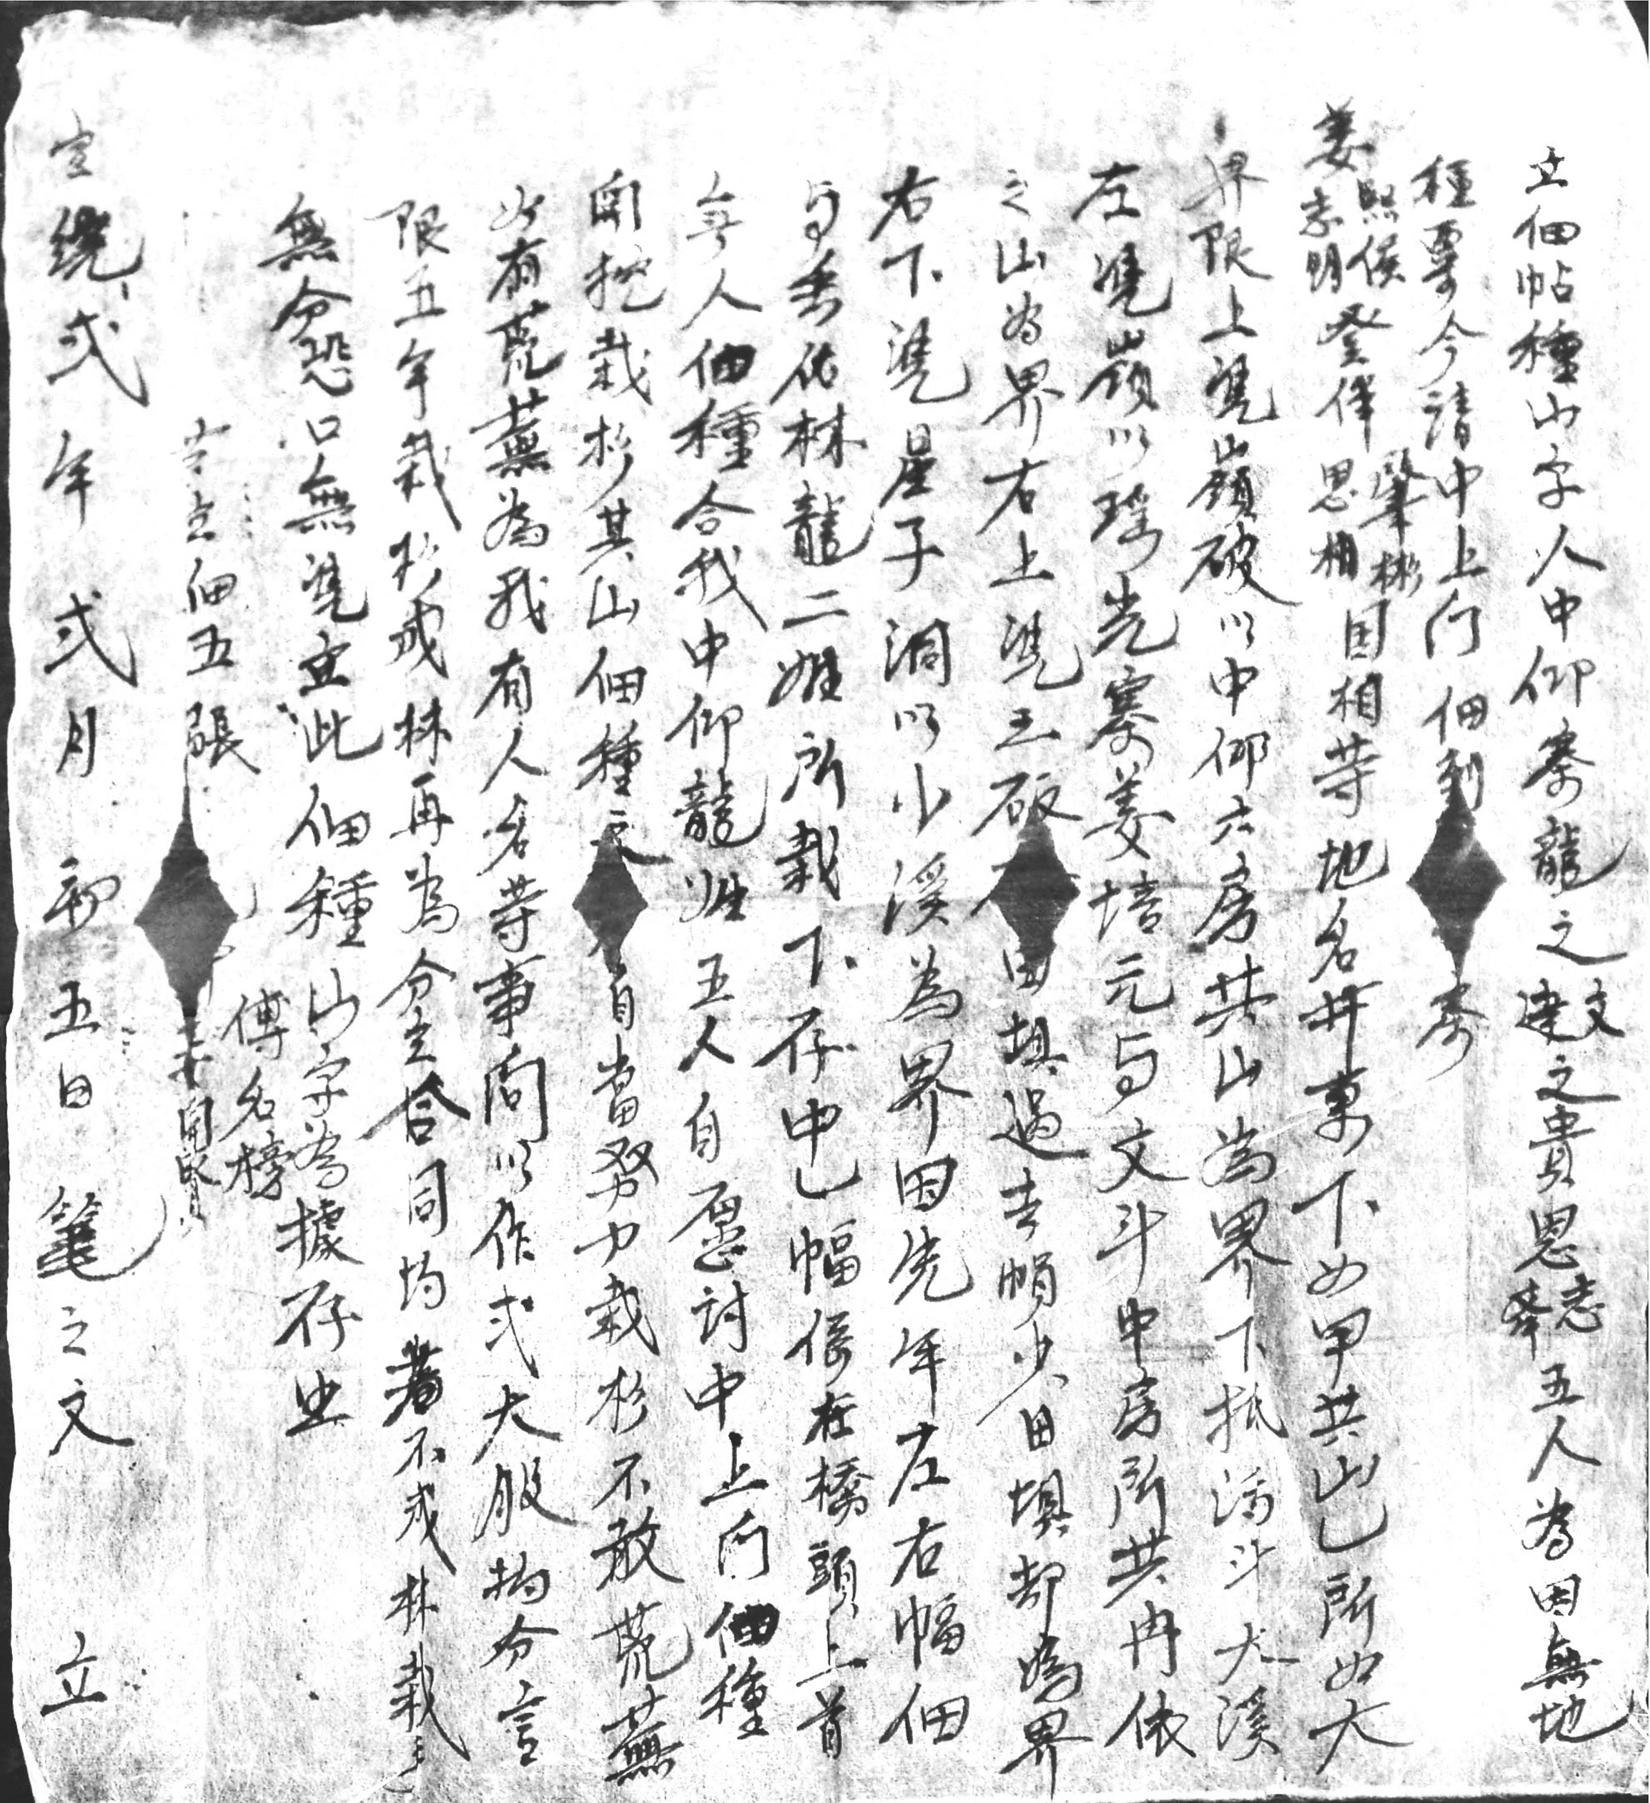 立佃帖種山字人中仰寨龍之文建之貴恩志峯五人為因無地
種粟今請中上門佃到寨
姜熙侯志明登伴肇彬恩相因相等地名井東下如甲共山乙所如大
界限上凴嶺破以中仰六房共山為界下抵污斗大溪
左凴嶺以瑤光寨姜培元与文斗中房所共冉依
之山為界右上凴工破田塤過去帽少田塤却為界
右下凴星子洞以小溪為界因先年左右幅佃
与岩佑林龍二姓所栽下存中乙幅係在橋頭上首
無人佃種合我中仰龍姓五人自愿討中上門佃種
開挖栽杉其山佃種之自當努力栽杉不敢荒蕪
如有荒蕪為我有人名等事問以作弍大股均分言
限五年栽杉成林再為分立合同均若不成林栽主
無分恐口無凴立此佃種山字為據存照
共立佃五張
傅名榜
宣統弍年弍月初五日筆之文立